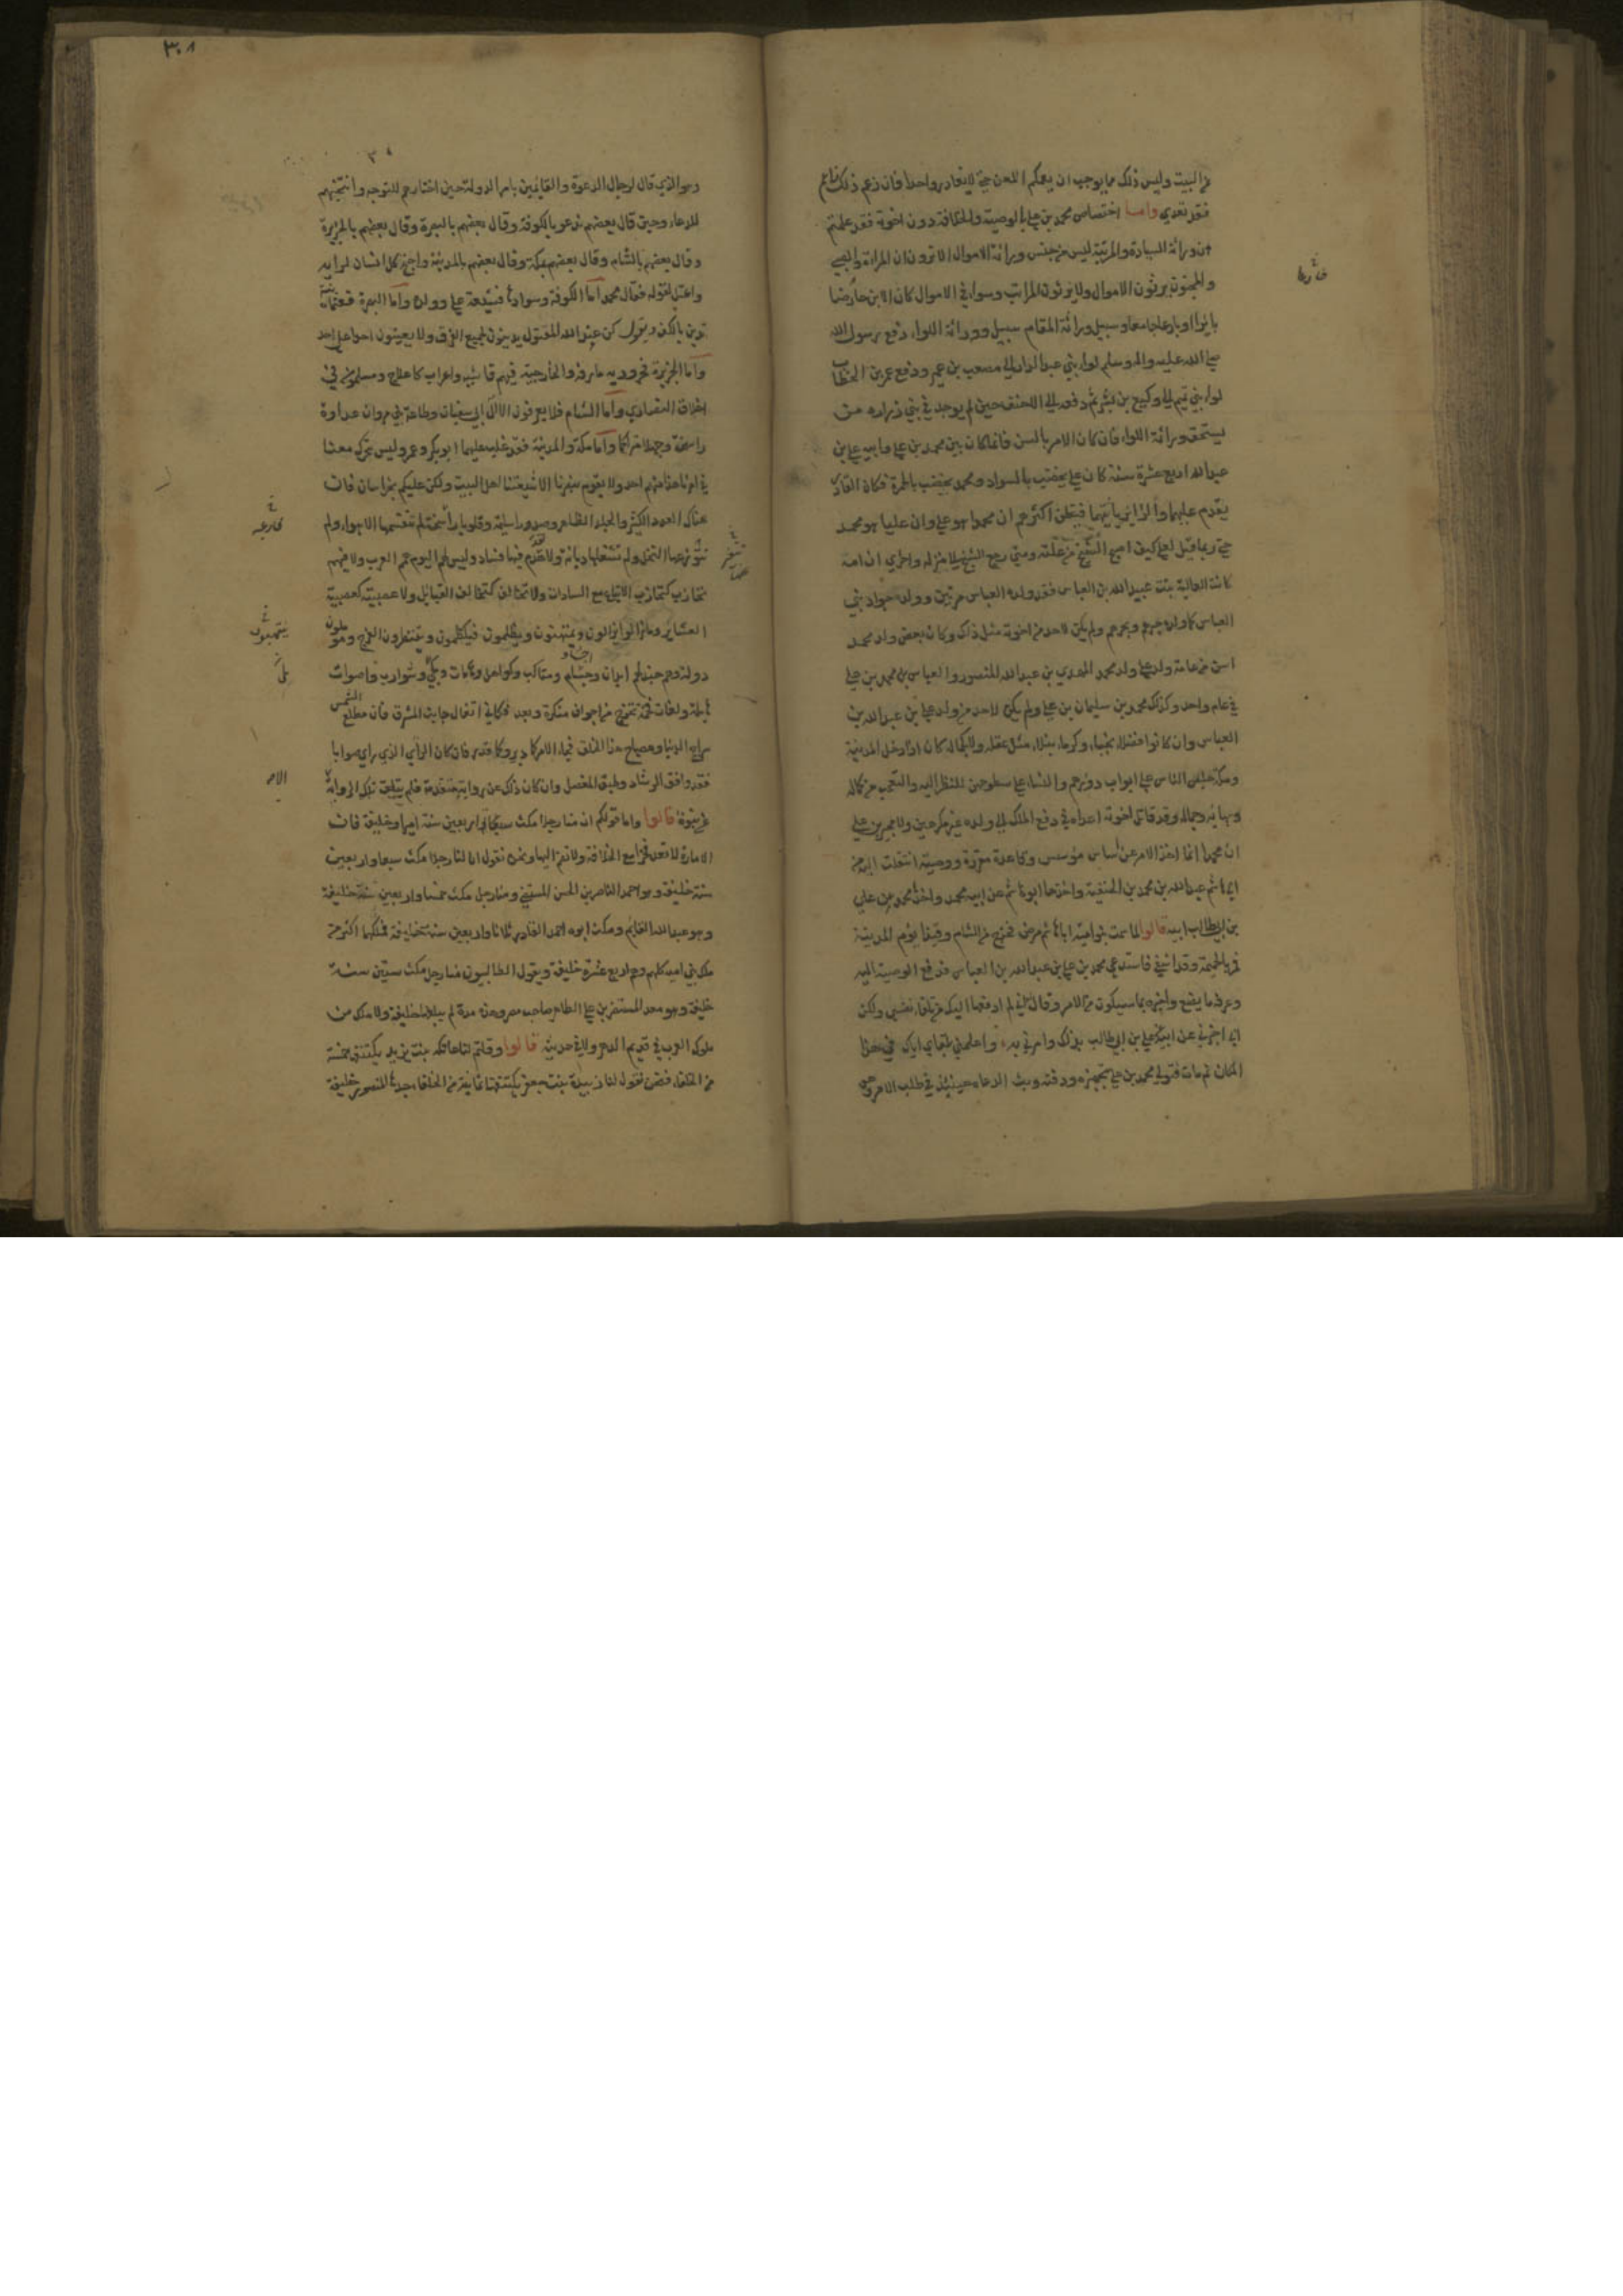 من البيت وليس ذلك مما يوجب ان يعمكم اللعن حتى لا يغادر واحدا فان زعم ذلك زاعم
فقد تعدى واما اختصاص محمد بن علي بالوصية والخلافة دون اخوته فقد علمتم
ان وراثة السيادة والمرتبة ليس من جنس وراثة الاموال الا ترون ان المراة والصبي
والمجنون يرثون الاموال ولا يرثون المراتب وسواء في الاموال كان الابن حارضا
بايرا او بارعا جامعا وسبيل وراثة المقام سبيل وراثة اللواء دفع رسول الله
صلى الله عليه واله وسلم لواء بني عبد الدار الى مصعب بن عمير ودفع عمر بن الخطاب
لواء بني تميم الى وكيع بن بشر ثم دفعه الى الاحنف حين لم يوجد في بني زرارة من
يستحق وراثة اللواء فان كان الامر بالسن فانما كان بين محمد بن علي وابيه علي بن
عبد الله اربع عشرة سنة كان علي يخضب بالسواد ومحمد يخضب بالحمرة فكان القادم
يقدم عليهما والزائر ياتيهما فيظن اكثرهم ان محمدا هو علي وان عليا هو محمد
حتى ربما قيل لعلي كيف اصبح الشيخ من علته ومتى رجع الشيخ الى منزله واخرى ان امه
كانت العالية بنت عبيد الله بن العباس فقد ولده العباس مرتين وولده جواد بني
العباس كما ولده خيرهم وبحرهم ولم يكن لاحد من اخوته مثل ذلك وكان بعض ولد محمد
اسن من عامة ولد علي ولد محمد المهدي بن عبد الله المنصور والعباس بن محمد بن علي
في عام واحد وكذلك محمد بن سليمان بن علي ولم يكن لاحد من ولد علي بن عبد الله بن
العباس وان كانوا فضلاء نجباء وكرماء نبلاء مثل عقله ولا كجماله كان اذا دخل المدينة
ومكة جلس الناس على ابواب دورهم والنساء على سطوحهن للنظر اليه والتعجب من كماله
وبهائه وجماله وقد قاتل اخوته اعداءه في دفع الملك الى ولده غير مكرهين ولا مجبرين على
ان محمدا انما اخذ الامر عن اساس مؤسس وقاعدة مقررة ووصية انتقلت اليه من
ابي هاشم عبد الله بن محمد بن الحنفية واخذها ابو هاشم عن ابيه محمد واخذ محمد من علي
بن ابي طالب ابيه قالوا لما سمت بنو امية ابا هاشم مرض فخرج من الشام وقيذا يؤم المدينة
فمر بالحميمة وقد اشفى فاستدعى محمد بن علي بن عبد الله بن العباس فدفع الوصية اليه
وعرفه ما يصنع واخبره بما سيكون من الامر وقال له اني لم ادفعها اليك من تلقاء نفسي ولكن
ابي اخبرني عن ابيه علي بن ابي طالب بذلك وامرني به واعلمني بلقاي اياك في هذا
المكان ثم مات فتولى محمد بن علي تجهيزه ودفنه وبث الدعاة حينئذ في طلب الامر
فارها
٣٠٨
وهو الذي قال لرجال الدعوة والقايمين بامر الدولة حين اختارهم للتوجه وانتخبهم
للدعاء وحين قال بعضهم ندعو بالكوفة وقال بعضهم بالبصرة وقال بعضهم بالجزيرة
وقال بعضهم بالشام وقال بعضهم بمكة وقال بعضهم بالمدينة واحتج كل انسان لرايه
واعتل لقوله فقال محمد اما الكوفة وسوادها فشيعة علي وولده واما البصرة فعثمانية
تدين بالكف وتقول كن عبد الله المقتول يدينون بجميع الفرق ولا يعينون احدا على احد
واما الجزيرة فحرورية مارقة والخارجية فيهم فاشية واعراب كاعلاج ومسلمون في
اخلاق النصارى واما الشام فلا يعرفون الا آل ابي سفيان وطاعة بني مروان عداوة
راسخة وجهلا متراكما واما مكة والمدينة فقد غلب عليهما ابو بكر وعمر وليس يتحرك معنا
في امرنا هذا منهم احد ولا يقوم بنصرنا الا شيعتنا اهل البيت ولكن عليكم بخراسان فان
هناك العدد الكثير والجلد الظاهر وصدورا سليمة وقلوبا لم تتقسمها الاهواء ولم
تتوزعها النحل ولم تشغلها ديانة ولا تقدم فيها فساد وليس لهم اليوم همم العرب ولا فيهم
تحارب كتحارب الاتباع مع السادات ولا تحالف كتحالف القبايل ولا عصبية كعصبية
العشاير وما زالوا يذالون ويمتهنون ويظلمون فيكظمون وينتظرون الفرج ويؤملون
دولة وهم جند لهم ابدان واجسام ومناكب وكواهل وهامات ولحى وشوارب واصوات
هايلة ولغات فخمة تخرج من اجواف منكرة وبعد فكاني اتفال جانب المشرق فان مطلع الشمس
سراج الدنيا ومصباح هذا الخلق فجاء الامر كما دبر وكما قدر فان كان الراي الذي راى صوابا
فقد وافق الرشاد وطبق المفصل وان كان ذلك عن رواية متقدمة فلم يتلق تلك الرواية الا
عن نبوة قالوا واما قولكم ان منا رجلا مكث اربعين سنة اميرا وخليفة فان
الامارة لا تعد فخرا مع الخلافة ولا تضم اليها ونحن نقول ان لنا رجلا مكث سبعا واربعين
سنة خليفة وهو احمد الناصر بن الحسن المستضي ومنا رجل مكث خمسا واربعين سنة خليفة
وهو عبد الله القايم ومكث ابوه احمد القادر ثلاثا واربعين سنة خليفة فملكهما اكثر من
ملك بني امية كلهم وهم اربع عشرة خليفة ويقول الطالبيون منا رجل مكث ستين سنة
خليفة وهو معد المستنصر بن علي الظاهر صاحب مصر وهذه مدة لم يبلغها خليفة ولا ملك من
ملوك العرب في قديم الدهر ولا في حديثه قالوا وقلتم لنا عاتكة بنت يزيد يكتنفها خمسة
من الخلفاء فنحن نقول لنا زبيدة بنت جعفر يكتنفها ثمانية من الخلفاء جدها المنصور خليفة
فارغه
الامر